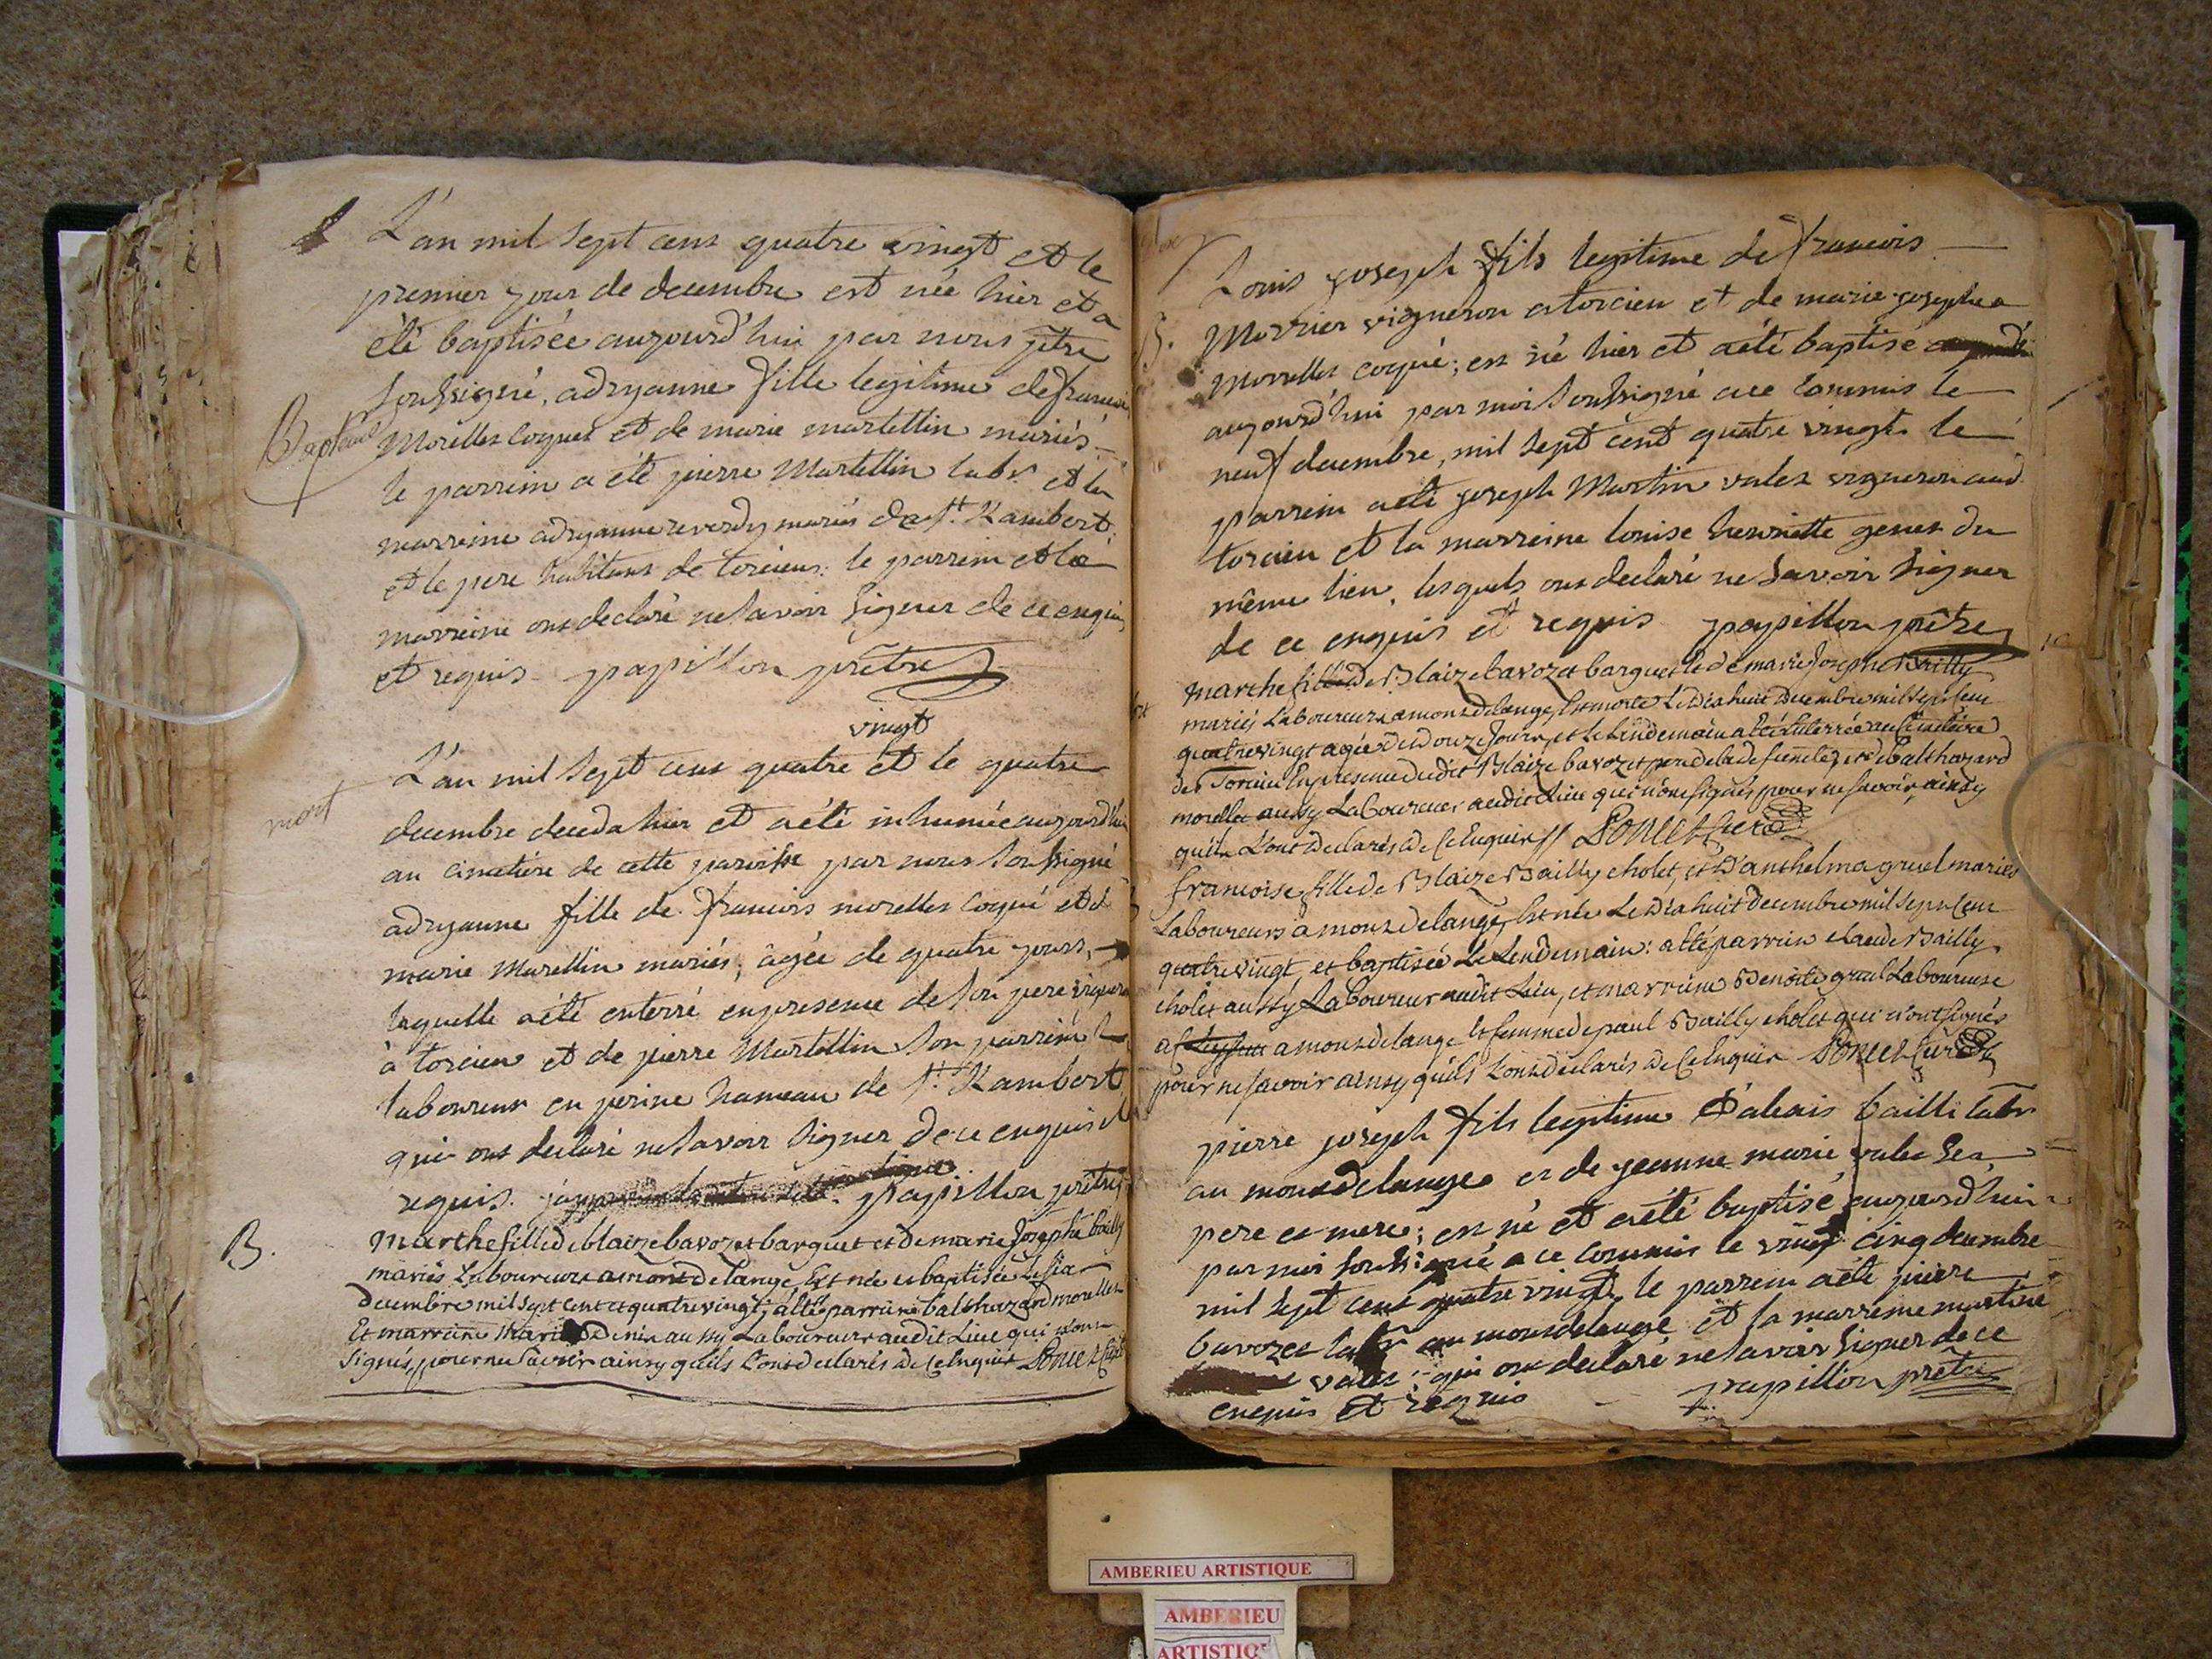 L'an mil sept cens quatre vingt et le
premier jour de decembre est née hier et a
été baptisée aujourd'hui par nous ptre
soussigné, adryanne fille legitime de francois
Baptême
Morelles coquet et de marie martellin mariés
le parrein a été pierre Martellin labr et la
marreine adryanne reverdy mariés de st. Rambert
et le pere habitans de torcieux: le parrein et la
marreine ont declaré ne savoir signer de ce enquis
et requis papillon prêtre
vingt
L'an mil sept cens quatre et le quatre
mort
decembre deceda hier et a été inhumée aujourd'hui
au cimetière de cette paroisse par nous soussigné
adryanne fille de francois morelles coqué et de
marie Martellin mariés, âgée de quatre jours,
laquelle a été enterré en presence de son pere vigneron
à torcieu et de pierre Martellin son parrein
laboureur en perine hameau de st. Rambert
qui ont declaré ne savoir signer de ce enquis et
requis. papillon prêtre
B.
Marthe fille de blaize bavozet barquet et de marie Josephe bailly
mariés Laboureurs a mont de lange Est née et baptisée Le six
decembre mil sept cent et quatre vingt, a été parrain balthazard morellet
Et marraine marie Denin aussy Laboureurs audit Lieu qui n'ont
signés, pour ne savoir ainsy quils L'ont declarés de ce Enquis Poncet Curé
Louis joseph fils legitime de francois
B.
Morrier vigneron a torcieu et de marie josephe
Morelles coqué; est né hier et a été baptisé
aujourd'hui par moi soussigné a ce commis le
neuf decembre, mil sept cent quatre vingt le
parrein a été joseph Martin valet vigneron aud.
torcieu et la marreine louise henriette genet du
même lieu, lesquels ont declaré ne savoir signer
de ce enquis et requis papillon prêtre
marthe fille de Blaize bavozet barquet et de marie Josephe Bailly
mariés Laboureurs a mont de lange, Est morte Le dix huit decembre mil sept cent
quatre vingt agée de douze Jours, et Le Lendemain a été Enterrée au cimetière
de Torcieu En presence dudit Blaize bavozet pere de la defunte, et de balthazard
morellet aussy Laboureur audit Lieu qui n'ont signés pour ne savoir, ainsy
quils L'ont declarés de ce Enquis // Poncet Curé
francoise fille de Blaize Bailly cholet, et d'anthelma gruel mariés
Laboureurs a mont de lange, Est née Le dix huit decembre mil sept cent
quatre vingt et baptisée Le Lendemain: a été parrain claude Bailly
cholet aussy Laboureur audit Lieu, et marraine Benoite gruel Laboureuse
a mont de lange et femme de paul Bailly cholet qui n'ont signés
pour ne savoir ainsy quils L'ont declarés de ce Enquis Poncet Curé
pierre joseph fils legitime d'alexis bailli labr
au mont de lange et de jeanne marie valet ses
pere et mere; est né et a été baptisé aujourd'hui
par moi soussigné a ce commis le vingt cinq decembre
mil sept cent quatre vingt, le parrein a été pierre
bavozet labr au mont de lange et la marreine martine
valet; qui ont declaré ne savoir signer de ce
enquis et requis papillon prêtre
AMBERIEU ARTISTIQUE
AMBERIEU
ARTISTIQ